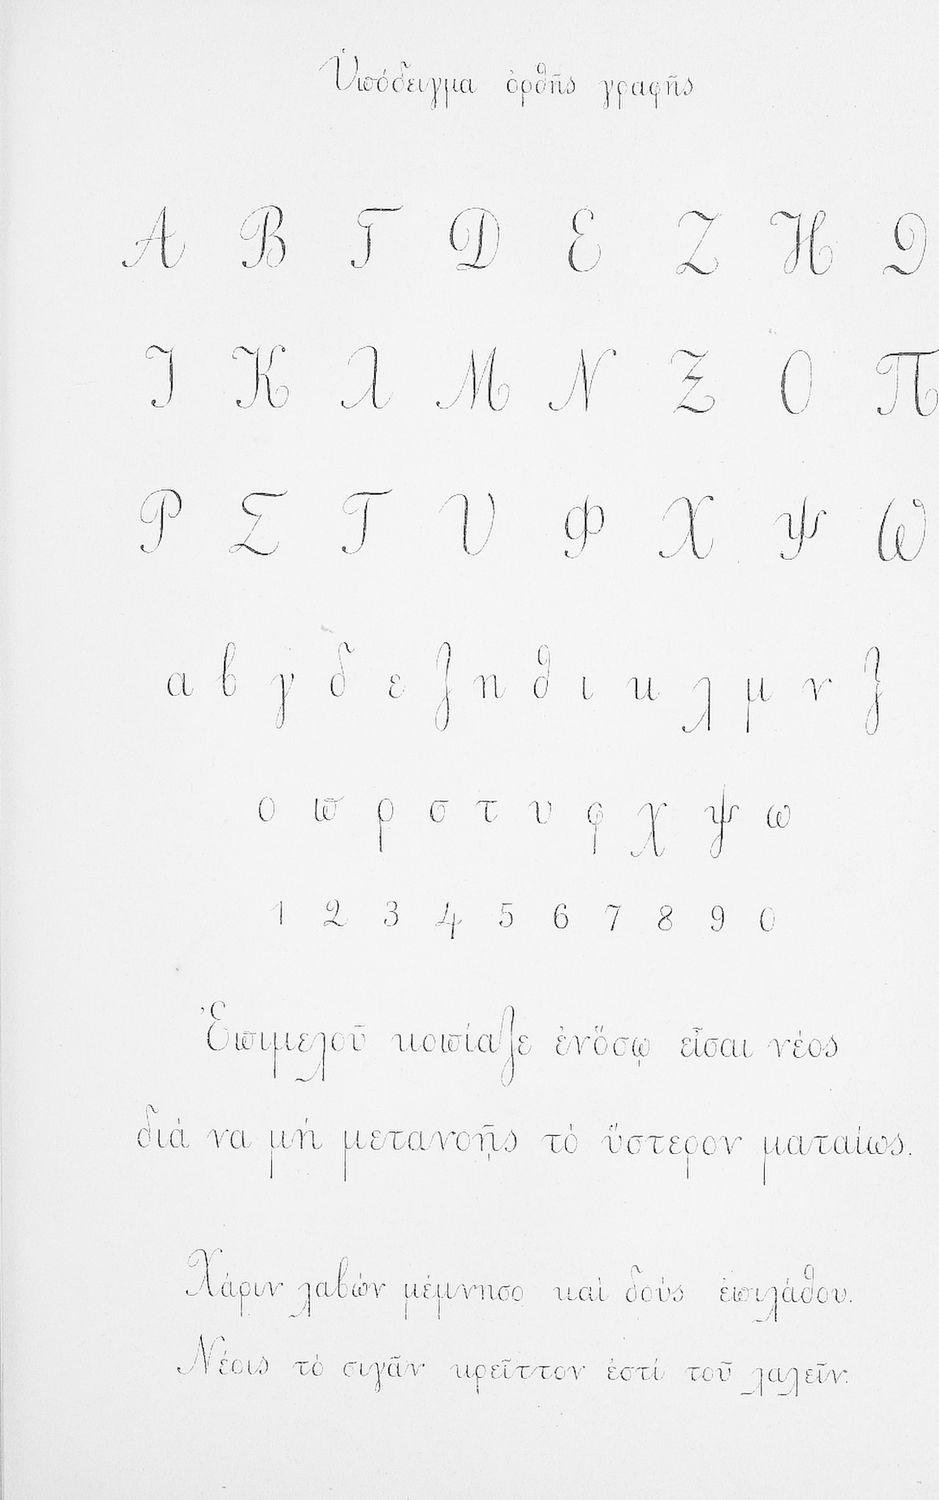 Ὑπόδειγμα ὀρθῆς γραφῆς
Α Β Γ Δ Ε Ζ Η Θ
Ι Κ Λ Μ Ν Ξ Ο Π
Ρ Σ Τ Υ Φ Χ Ψ Ω
α β γ δ ε ζ η θ ι κ λ μ ν ξ
ο π ρ σ τ υ φ χ ψ ω
1 2 3 4 5 6 7 8 9 0
Ἐπιμελοῦ κοπίαζε ἐνὅσῳ εἶσαι νέος
διὰ να μὴ μετανοῇς τὸ ὕστερον ματαίως.
Χάριν λαβὼν μέμνησο καὶ δοὺς ἐπιλάθου.
Νέοις τὸ σιγᾶν κρεῖττον ἐστί τοῦ λαλεῖν.